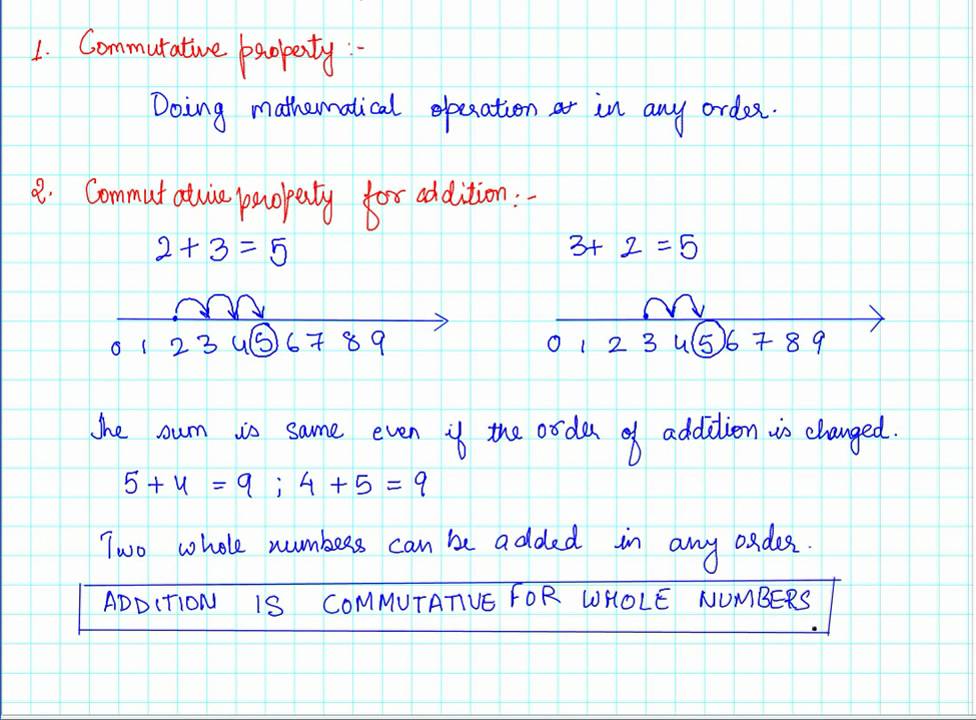 1. Commutative property :-
Doing mathematical operation in any order.
2. Commutative property for addition :-
2 + 3 = 5 3 + 2 = 5
0 1 2 3 4 5 6 7 8 9 0 1 2 3 4 5 6 7 8 9
The sum is same even if the order of addition is changed.
5 + 4 = 9 ; 4 + 5 = 9
Two whole numbers can be added in any order.
ADDITION IS COMMUTATIVE FOR WHOLE NUMBERS.